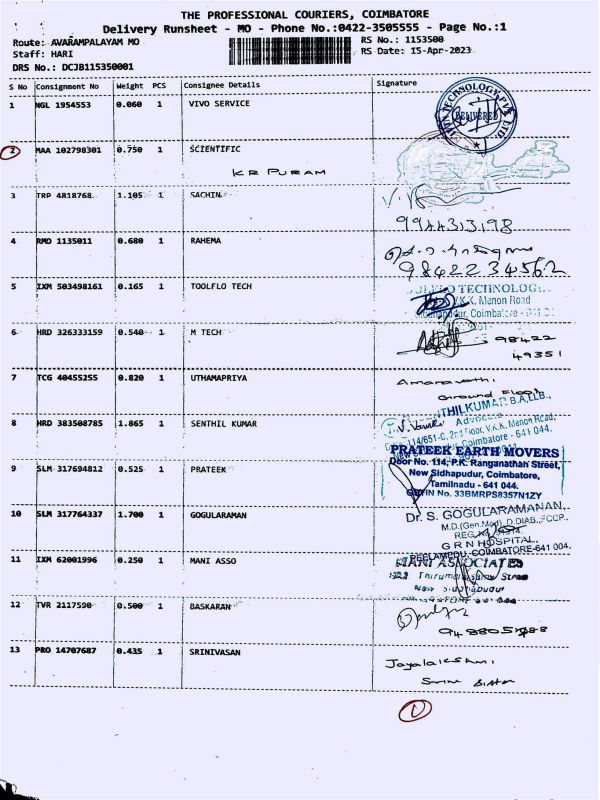 THE PROFESSIONAL COURIERS, COIMBATORE
Delivery Runsheet - MO - Phone No.:0422-3505555 - Page No.:1
Route: AVARAMPALAYAM MO
RS No.: 1153500
Staff: HARI
RS Date: 15-Apr-2023
DRS No.: DCJB115350001
S No Consignment No Weight PCS Consignee Details Signature
1 NGL 1954553 0.060 1 VIVO SERVICE
TECHNOLOGY PVT. LTD.
DELIVERED
2 MAA 102798301 0.750 1 SCIENTIFIC
KR PURAM
3 TRP 4818768 1.105 1 SACHIN
9944313198
4 RMD 1135011 0.680 1 RAHEMA
9842234562
5 IXM 503498161 0.165 1 TOOLFLO TECH
TECHNOLOG
V.K.K. Menon Road
Coimbatore
6 HRD 326333159 0.540 1 M TECH
98422
49351
7 TCG 40455255 0.820 1 UTHAMAPRIYA
Amaravathi
Ground Floor
8 HRD 383508785 1.865 1 SENTHIL KUMAR
THILKUMAR B.A,LLB.,
Advocate
114/651-C, 2nd Floor, V.K.K. Menon Road,
Coimbatore - 641 044.
9 SLM 317694812 0.525 1 PRATEEK
PRATEEK EARTH MOVERS
Door No. 114, P.K. Ranganathan Street,
New Sidhapudur, Coimbatore,
Tamilnadu - 641 044.
GSTIN No. 33BMRPS8357N1ZY
10 SLM 317764337 1.700 1 GOGULARAMAN
Dr. S. GOGULARAMANAN,
M.D.(Gen.Med), D.DIAB.,FCCP.,
G R N HOSPITAL,
PEELAMEDU, COIMBATORE-641 004.
11 IXM 62001996 0.250 1 MANI ASSO
MANI ASSOCIATES
12 TVR 2117590 0.500 1 BASKARAN
13 PRO 14707687 0.435 1 SRINIVASAN
Jayalakshmi
1